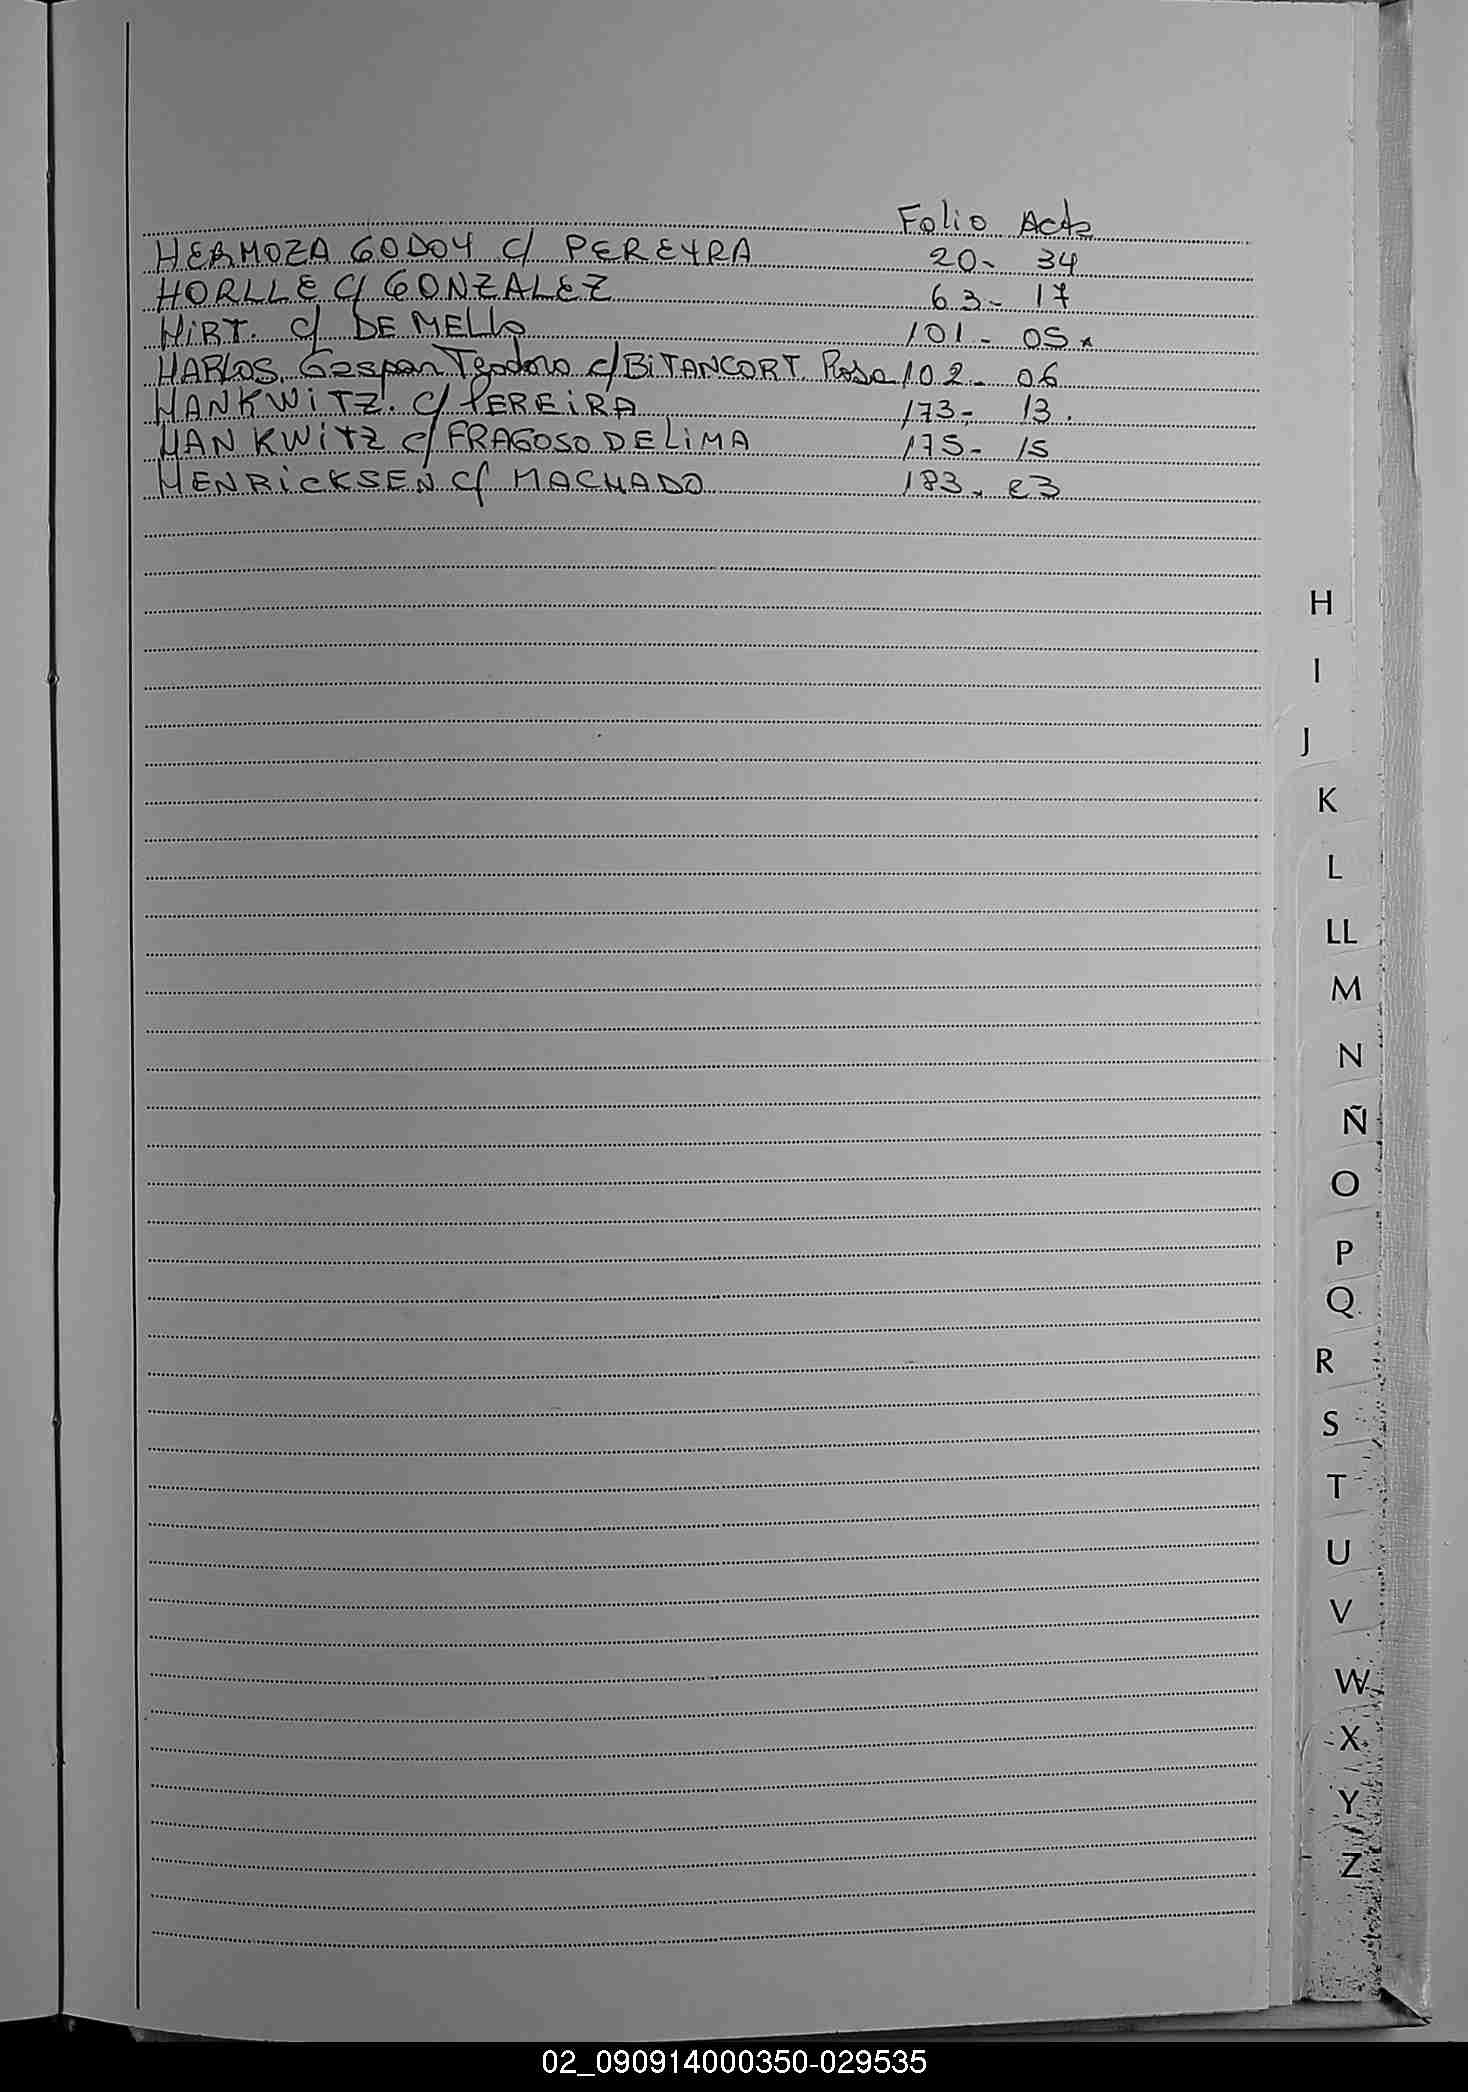 Folio Acta
HERMOZA GODOY c/ PEREYRA 20- 34
HORLLE c/ GONZALEZ 63- 17
HIRT. c/ DE MELLO 101- 05.
HARLOS, Gaspar Teodoro c/ BITANCORT Rosa 102- 06
HANKWITZ. c/ PEREIRA 173- 13.
HANKWITZ c/ FRAGOSO DE LIMA 175- 15
HENRICKSEN c/ MACHADO 183. 23
H
I
J
K
L
LL
M
N
Ñ
O
P
Q
R
S
T
U
V
W
X
Y
Z
02_090914000350-029535